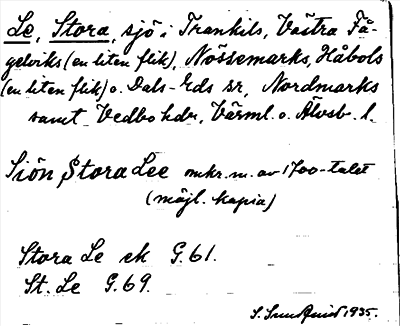 Le, Stora, sjö i Trankils, Västra Få-
gelviks (en liten flik), Nössemarks, Håbols
(en liten flik) o. Dals-Eds sr, Nordmarks
samt Vedbo hdr, Värml. o. Älvsb. l.
Siön Stora Lee mkr. m. av 1700-talet
(möjl. kopia)
Stora Le ek G. 61.
St. Le G. 69.
1935.